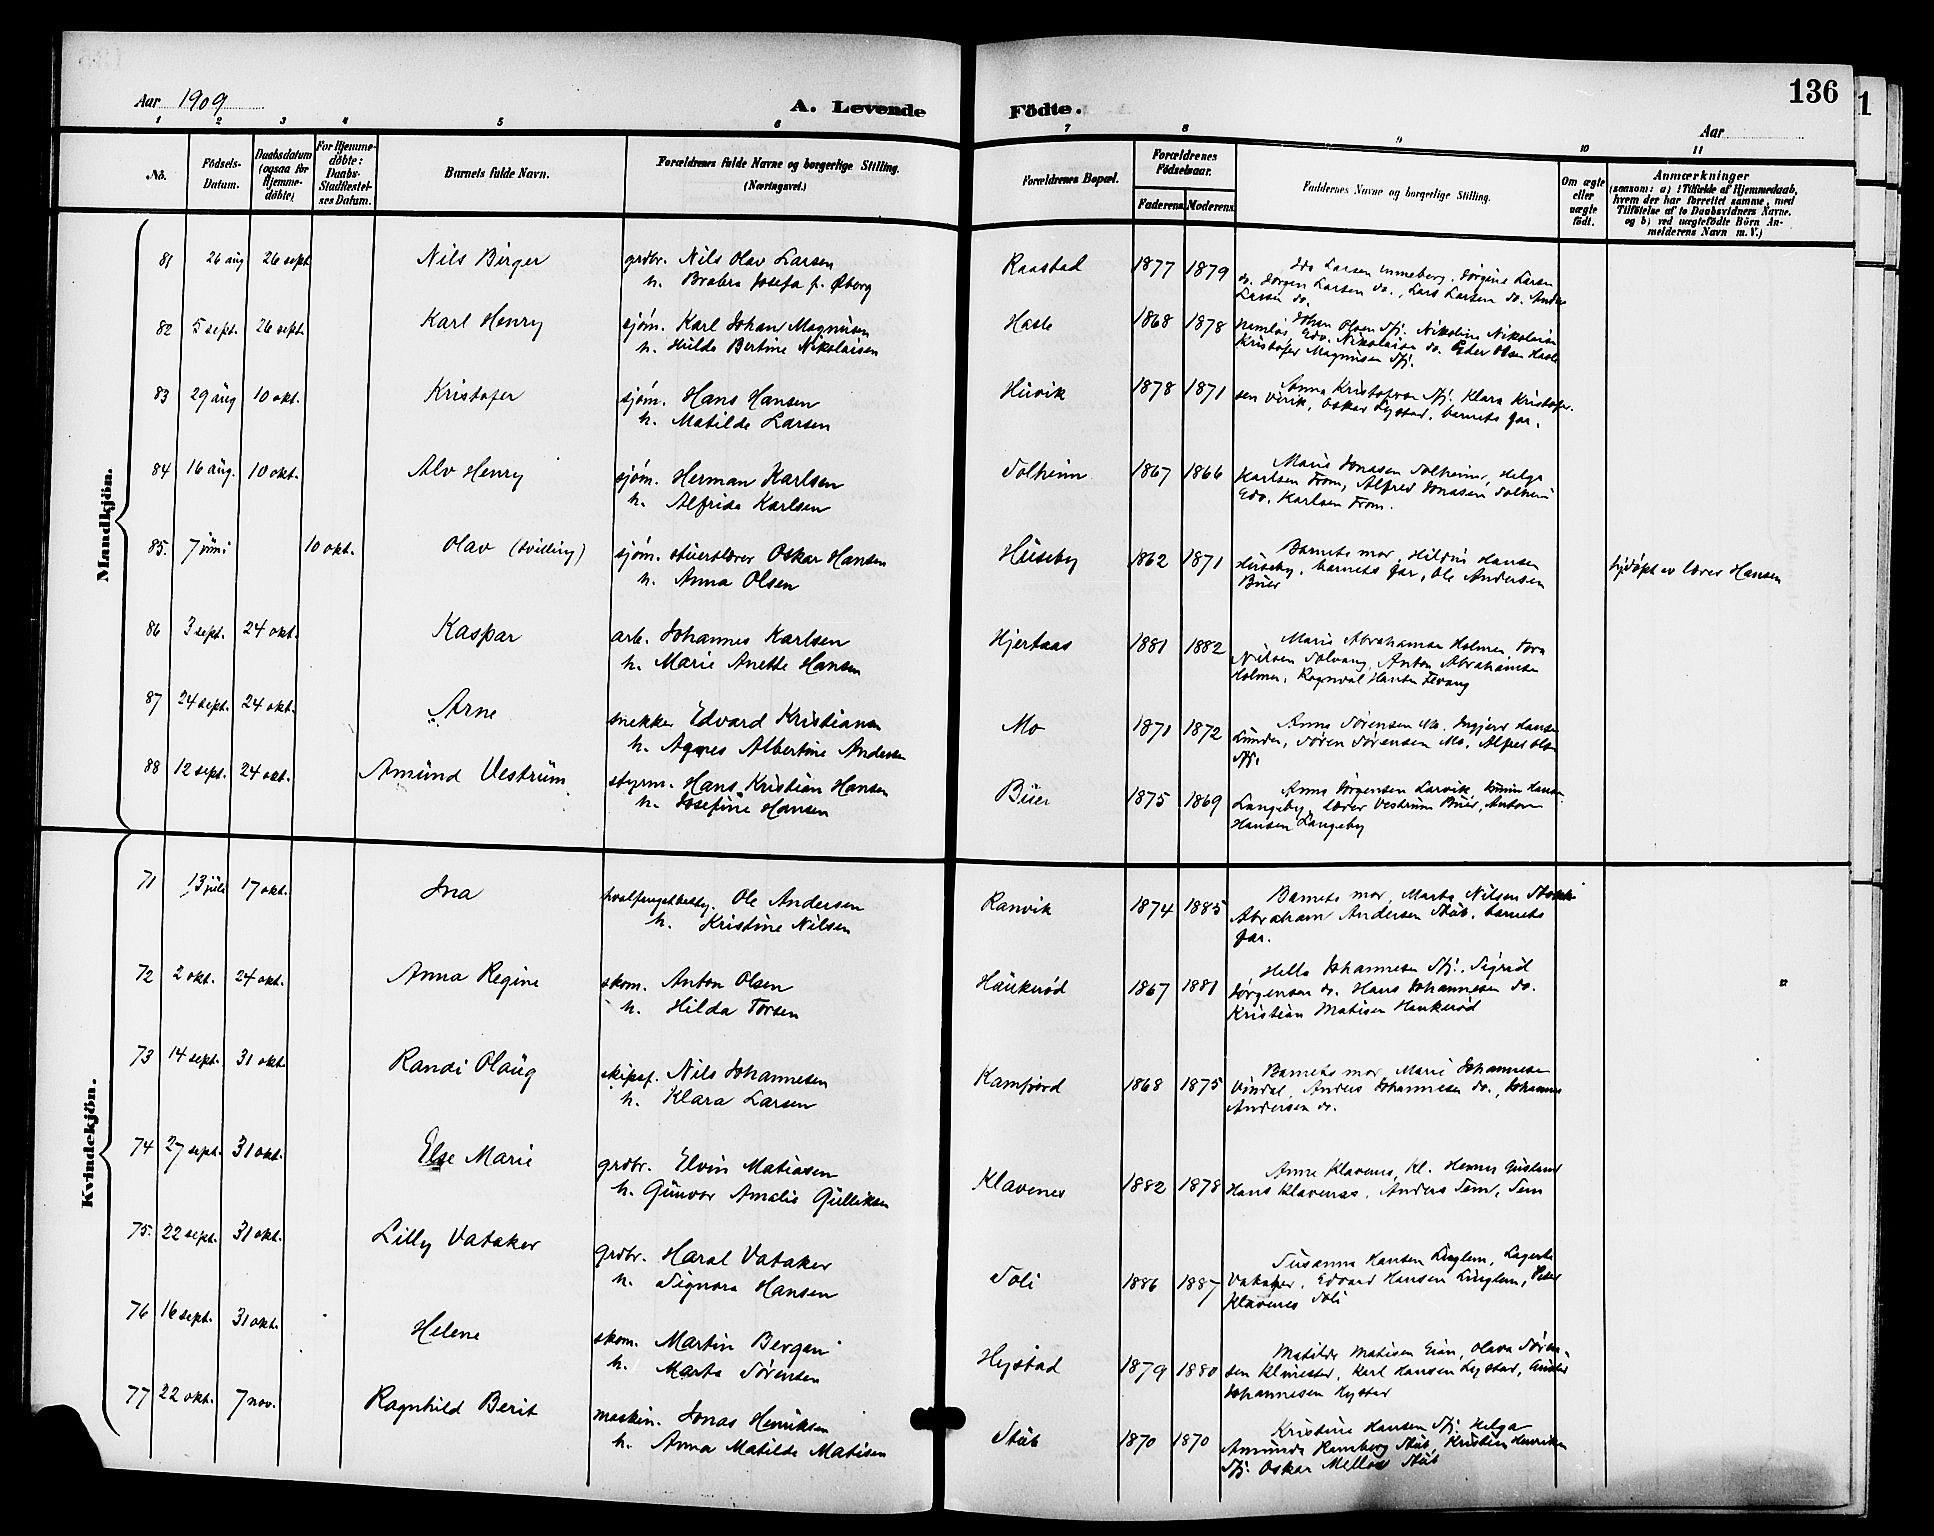 136
1
Aar 1909
A. Levende Födte.
Aar
1 2 3 4 5 6 7 8 9 10 11
No.
Födsels-Datum.
Daabsdatum (ogsaa for Hjemmedöbte)
For Hjemmedöbte: Daabs-Stadfæstelses Datum.
Barnets fulde Navn.
Forældrenes fulde Navne og borgerlige Stilling. (Næringsvei.)
Forældrenes Bopæl.
Forældrenes Födselsaar.
Faderens. Moderens.
Faddernes Navne og borgerlige Stilling.
Om ægte eller uægte födt.
Anmærkninger
(saasom: a) i Tilfælde af Hjemmedaab, hvem der har forrettet samme, med Tilföielse af to Daabsvidners Navne, og b) ved uægtefödte Börn Anmelderens Navn m. V.)
Mandkjön.
81 26 aug 26 sept Nils Birger grdbr. Nils Olav Larsen Raastad 1877 1879 Larsen Unneberg, Jørgine Larsen
h. Josefa f. Øberg do. Jørgen Larsen do., Lars Larsen do.
Larsen do.
82 5 sept. 26 sept. Karl Henry sjøm. Karl Johan Magnusen Hasle 1868 1878 Johan Olsen Sfj. Nikoline Nikolaisen
h. Hulda Bertine Nikolaisen Edv. Nikolaisen do. Olsen Hasle
Kristofer Magnusen Sfj.
83 29 aug 10 okt. Kristofer sjøm. Hans Hansen Huvik 1878 1871 Anna Kristofersen Sfj. Klara Kristofer-
h. Matilde Larsen sen Virik, Oskar Lystad, barnets far.
84 16 aug. 10 okt. Alv Henry sjøm. Herman Karlsen Solheim 1867 1866 Marie Jonasen Solheim, Helga
h. Alfrida Karlsen Karlsen From, Alfred Jonasen Solheim
Edv. Karlsen From.
85. 7 juni 10 okt. Olav (tvilling) sjøm. Oskar Hansen Huseby 1862 1871 Barnets mor, Hansen
h. Anna Olsen Huseby, barnets far, Ole Andersen
Buer
hjdøpt av lærer Hansen
86 3 sept. 24 okt. Kaspar arb. Johannes Karlsen Hjertaas 1881 1882 Marie Abrahamsen Holmen, Tora
h. Marie Anette Hansen Nilsen Solvang, Anton Abrahamsen
Holmen, Ragnval Hansen Fevang
87 24 sept. 24 okt. Arne snekker Edvard Kristiansen Mo 1871 1872 Anna Sørensen Mo, Ingjerd Hansen
h. Agnes Albertine Andersen Lunden, Søren Sørensen Mo, Alfred Olsen
Sfj.
88 12 sept. 24 okt. Amund Vestrum styrm. Hans Kristian Hansen Buer 1875 1869 Anna Jørgensen Larvik, Hansen
h. Josefine Hansen Langeby, lærer Vestrum Buer, Anton
Hansen Langeby
Kvindekjön.
71 13 juli 17 okt. Ina Ole Andersen Ranvik 1874 1885 Barnets mor, Marta Nilsen
h. Kristine Nilsen Abraham Andersen Stub, barnets
far.
72 2 okt. 24 okt. Anna Regine skom. Anton Olsen Haukerød 1867 1881 Hella Johannesen Sfj., Sigrid
h. Hilda Torsen Jørgensen do. Hans Johannesen do.
Kristian Matisen Haukerød
73 14 sept. 31 okt. Randi Olaug skipsf. Nils Johannesen Kamfjord 1868 1875 Barnets mor, Marie Johannesen
h. Klara Larsen Vindal, Anders Johannesen do., Johannes
Andersen do.
74 27 sept. 31 okt. Else Marie grdbr. Elvin Matiasen Klavenes 1882 1878 Anna Klavenes, Kl.
h. Gunvor Amalie Gulliksen Hans Klavenes, Anders Tem, Tem
75. 22 sept. 31 okt. Lilly Vataker grdbr. Haral Vataker Soli 1886 1887 Susanna Hansen Linglem, Lagerta
h. Signora Hansen Vataker, Edvard Hansen Linglem, Peter
Klavenes Soli
76 16 sept. 31 okt. Helene skom. Martin Bergan Hystad 1879 1880 Matilde Matisen Eian, Olava Søren-
h. Marta Sørensen sen Klimester, Karl Hansen Lystad,
Johannesen Hystad
77 22 okt. 7 nov. Ragnhild Berit maskin. Jonas Henriksen Stub 1870 1870 Kristine Hansen Sfj. Helga
h. Anna Matilde Matisen Amunda Ramberg Stub, Kristian Henriksen
Sfj. Oskar Stub